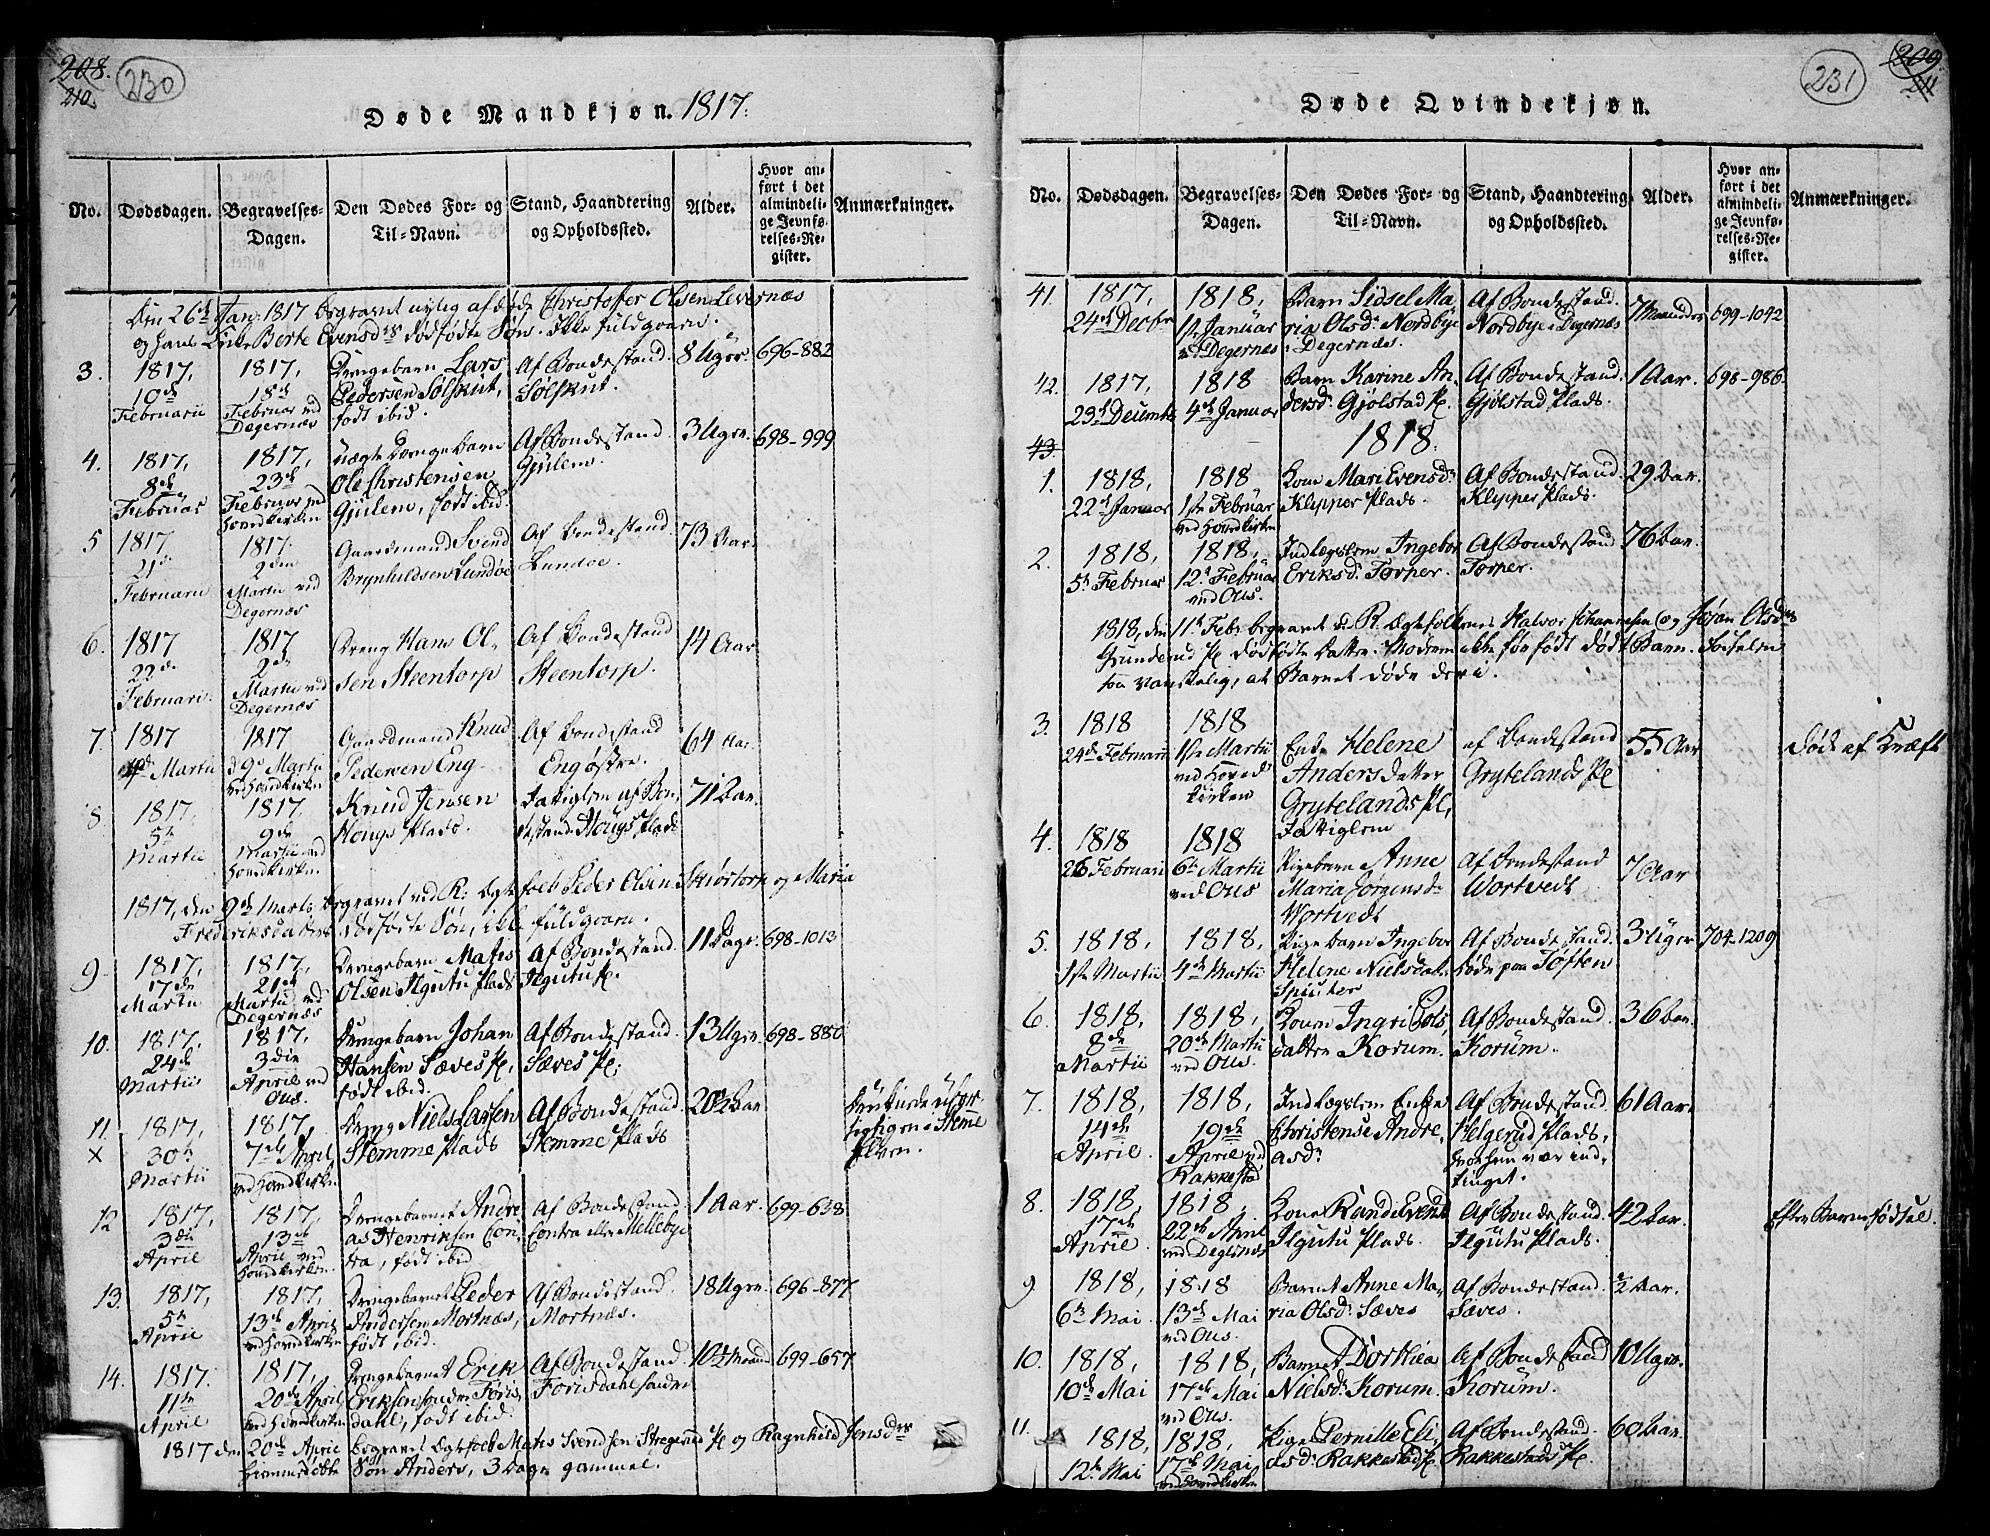 208.
210.
230
Døde Mandkjøn. 1817.
No.
Dødsdagen.
Begravelses-
Dagen.
Den Dødes For- og
Til-Navn.
Stand, Haandtering
og Opholdssted.
Alder.
Hvor an-
ført i det
almindeli-
ge Jevnfø-
relses-Re-
gister.
Anmærkninger.
Den 26de Jan: 1817 begravet nylig afdøde Christoffer Olsen Levernæs
og hans Enke Berte Evensdrs dødfødte Søn. Ikke fuldgaaen.
3.
1817,
10de
Februarii
1817,
18de
Februar ved
Degernæs
Drengebarn Lars
Pedersen Solskut,
født ibid.
Af Bondestand.
Solskut.
8 Uger.
696-882
4.
1817,
8de
Februar
1817,
23de
Februar ved
Hovedkirken
uægte Drengebarn
Ole Christensen
Gjulem, født ibid.
Af Bondestand.
Gjulem.
3 Ugr.
698-999
5
1817
21de
Februarii
1817.
2den
Martii ved
Degernæs
Gaardmand Svend
Brynhildsen Lundøe
Af Bondestand
Lundøe.
73 Aar.
6.
1817
22de
Februari.
1817
2de
Martii ved
Degernæs
Dreng Hans Ol-
sen Steentorp
Af Bondestand
Steentorp.
14 Aar
7.
1817
Martii
1817
d 9de Martii
ved Hovedkirken
Gaardmand Knud
Pedersen Eng
Af Bondestand
Eng østre.
64 Aar.
8.
1817.
5te
Martii
1817.
9de
Martii ved
Hovedkirken.
Knud Jensen
Hougs Plads.
Fattiglem af Bon-
destand. Hougs Plads
71 Aar.
1817, den 9de Marts begravet ved R: Egtefolk Peder Olsen Skiørtorp og Maria
Frederiksdatters dødfødte Søn, ikke fuldgaaen.
9.
1817,
17de
Martii
1817,
21de
Martii ved
Degernæs
Drengebarn Mates
Olsen Ilgutu Plads
Af Bondestand.
Ilgutu Pl.
11 Dage.
698-1013
10.
1817.
24de
Martii
1817.
3die
April ved
Ous.
Drengebarn Johan
Hansen Sæves Pl.
født ibid.
Af Bondestand.
Sæves Pl.
13 Ugr.
698-880
11.
x
1817,
30te
Martii
1817,
7de April
ved Hovedkirken
Dreng Niels Larsen
Stemme Plads
Af Bondestand.
Stemme Plads
20½ Aar
Druknede ufor-
sigtigen i Stemme
Elven.
12
1817,
3die
April
1817.
13de
April ved
Hovedkirken.
Drengebarnet Andre-
as Henriksen Con-
tra, født ibid
Af Bondestand.
Contra eller Mellebye
1 Aar.
699-638
13.
1817,
5te
April
1817,
13de April
ved Hovedkirken
Drengebarnet Peder
Andersen Mortnæs,
født ibid.
Af Bondestand.
Mortnæs.
18 Ugr.
696-877
14.
1817.
11te
April
1817,
20de April
ved Hovedkirken
Drengebarnet Erik
Eriksen søndre Foris-
dahl, født ibid.
Af Bondestand.
Forisdahl søndre
10½ Maaned
699-657
1817 den 20de April begravet Egtefolk Mates Svendsen Stregerud Pl og Ragnhild Jensdrs
hiemmedøbte Søn Anders, 3 Dage gammel.
209.
211
231
Døde Qvindekjøn.
No.
Dødsdagen.
Begravelses-
Dagen.
Den Dødes For- og
Til-Navn.
Stand, Haandtering
og Opholdssted.
Alder.
Hvor an-
ført i det
almindeli-
ge Jevnfø-
relses-Re-
gister.
Anmærkninger.
41.
1817,
24de Decbr
1818,
1ste Januar
ved Degernæs
Barn Sidsel Ma-
ria Olsdr Nordbye
i Degernæs.
Af Bondestand.
Nordbye i Degernæs
7 Maaneder
699-1042
42.
1817,
23de Decembr
1818
4de Januar
Barn Karine An-
dersdr Gjølstad Pl.
Af Bondestand.
Gjølstad Plads.
1 Aar.
698-986
43.
1818.
1.
1818,
22de Januar
1818
1ste Februar
ved Hovedkirken
Kone Mari Evensdr
Klypper Plads
Af Bondestand.
Klypper Plads.
29 Aar.
2.
1818,
5te Februar
1818,
12te Februar
ved Ous.
Indlægslem Ingebor
Eriksdr Torper.
Af Bondestand
Torper.
76 Aar.
1818, den 11te Febr begravet ved R. Egtefolkenes Halvor Johannesen og Jøran Olsdrs
Grunderud Pl dødfødte Datter. Moderen ikke før født dødt Barn. Fødselen
saa vanskelig, at Barnet døde deri.
3.
1818
24de Februarii
1818
1ste Martii
ved Hoved-
kirken
Enke Helene
Andersdatter
Grytelands Pl,
Fattiglem
af Bondestand
Grytelands Pl
55 Aar
død af Kræft
4.
1818
26 Februarii
1818
6te Martii
ved Ous
Pigebarn Anne
Maria Jørgensdr
Wortvedt
Af Bondestand
Wortvedt
7 Aar
5.
1818,
1ste Martii
1818,
4de Martii
Pigebarn Ingebor
Helene Nielsdat.
Spinker
Af Bondestand.
døde paa Toften
3 Uger
704-1209
6.
1818,
8de
Martii
1818,
20de Martii
ved Ous.
Konen Ingri Ols-
datter Korum.
Af Bondestand.
Korum.
36 Aar.
7.
1818,
14de
April.
1818,
19de
April ved
Rakkestad
Indlægslem Enke
Christense Andre-
asdr
Af Bondestand.
Helgerud Plads,
hvor hun var ind-
tinget.
61 Aar.
8.
1818,
17de
April
1818
22de April
ved Degernæs
Kone Randi Evensdr
Ilgutu Plads.
Af Bondestand.
Ilgutu Plads.
42 Aar.
Efter Barnefødsel.
9.
1818,
6te Mai
1818
13de Mai
ved Ous.
Barnet Anne Ma-
ria Olsdr Sæves
Af Bondestand.
Sæves.
2 Aar.
10.
1818,
10de Mai
1818,
17de Mai
ved Ous.
Barnet Dorthea
Nielsdr Korum.
Af Bondestand
Korum.
10 Ugr.
11.
1818,
12te Mai
1818,
17de Mai
ved Hovedkirken
Pige Pernille Eli-
asdr Rakkestad Pl
Af Bondestand.
Rakkestads Pl
60 Aar.